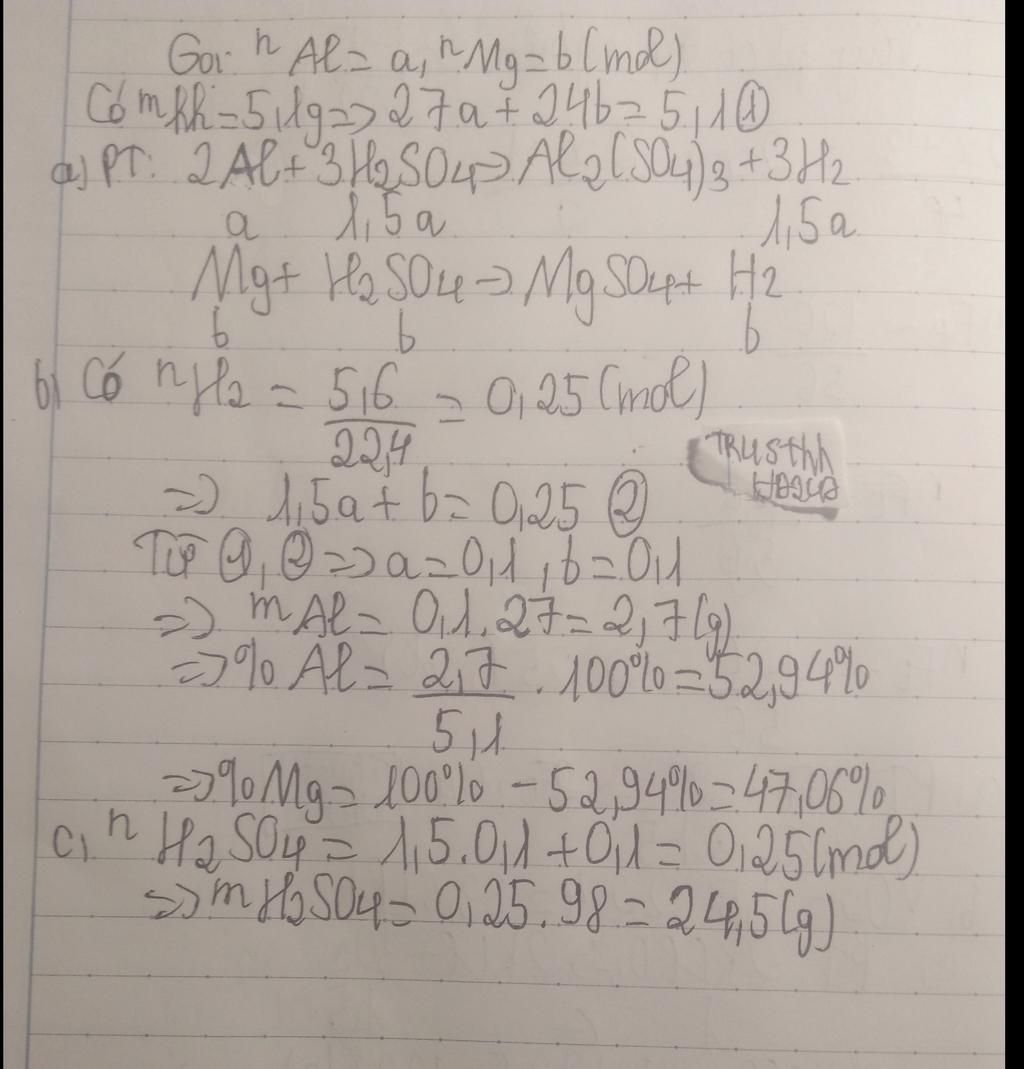 Gọi nAl = a, nMg = b (mol)
Có mhh = 5,1g => 27a + 24b = 5,1 ①
a) PT: 2Al + 3H2SO4 → Al2(SO4)3 + 3H2
a 1,5a 1,5a
Mg + H2SO4 → MgSO4 + H2
b b b
b) Có nH2 = 5,6/22,4 = 0,25 (mol)
=> 1,5a + b = 0,25 ②
Từ ①, ② => a = 0,1, b = 0,1
=> mAl = 0,1.27 = 2,7 (g)
=> % Al = 2,7/5,1 . 100% = 52,94%
=> % Mg = 100% - 52,94% = 47,06%
c, nH2SO4 = 1,5.0,1 + 0,1 = 0,25 (mol)
=> mH2SO4 = 0,25.98 = 24,5 (g)